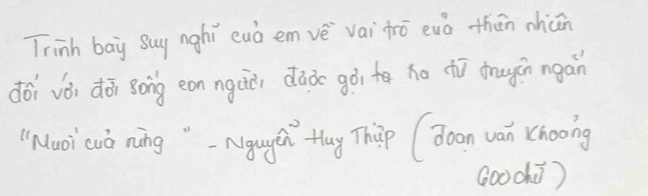 Trình bày suy nghĩ cuả em về vai trò cuả thiên nhiên
đối với đời sống con người, được gợi ra từ truyện ngắn
"Muối cuả rừng" - Nguyễn Huy Thiệp (đoạn văn khoảng
600 chữ)